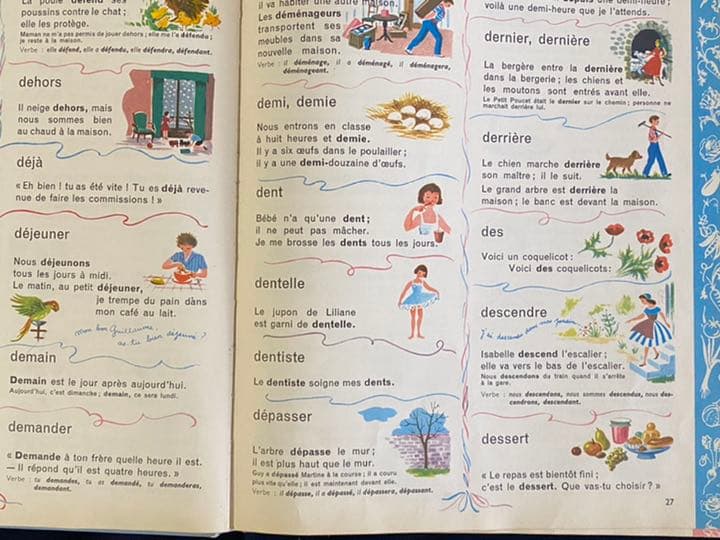 La poule défend ses
poussins contre le chat ;
elle les protège.
Maman ne m'a pas permis de jouer dehors ; elle me l'a défendu ;
je reste à la maison.
Verbe : elle défend, elle a défendu, elle défendra, défendant.
dehors
Il neige dehors, mais
nous sommes bien
au chaud à la maison.
déjà
« Eh bien ! tu as été vite ! Tu es déjà reve-
nue de faire les commissions ! »
déjeuner
Nous déjeunons
tous les jours à midi.
Le matin, au petit déjeuner,
je trempe du pain dans
mon café au lait.
Mon bon Guillaume,
as-tu bien déjeuné ?
demain
Demain est le jour après aujourd'hui.
Aujourd'hui, c'est dimanche ; demain, ce sera lundi.
demander
« Demande à ton frère quelle heure il est.
— Il répond qu'il est quatre heures. »
Verbe : tu demandes, tu as demandé, tu demanderas,
demandant.
il va habiter une autre maison.
Les déménageurs
transportent ses
meubles dans sa
nouvelle maison.
Verbe : il déménage, il a déménagé, il déménagera,
déménageant.
demi, demie
Nous entrons en classe
à huit heures et demie.
Il y a six œufs dans le poulailler ;
il y a une demi-douzaine d'œufs.
dent
Bébé n'a qu'une dent ;
il ne peut pas mâcher.
Je me brosse les dents tous les jours.
dentelle
Le jupon de Liliane
est garni de dentelle.
dentiste
Le dentiste soigne mes dents.
dépasser
L'arbre dépasse le mur ;
il est plus haut que le mur.
Guy a dépassé Martine à la course ; il a couru
plus vite qu'elle ; il est maintenant devant elle.
Verbe : il dépasse, il a dépassé, il dépassera, dépassant.
depuis une demi-heure ;
voilà une demi-heure que je l'attends.
dernier, dernière
La bergère entre la dernière
dans la bergerie ; les chiens et
les moutons sont entrés avant elle.
Le Petit Poucet était le dernier sur le chemin ; personne ne
marchait derrière lui.
derrière
Le chien marche derrière
son maître ; il le suit.
Le grand arbre est derrière la
maison ; le banc est devant la maison.
des
Voici un coquelicot :
Voici des coquelicots :
descendre
J'ai descendu dans mon jardin
Isabelle descend l'escalier ;
elle va vers le bas de l'escalier.
Nous descendons du train quand il s'arrête
à la gare.
Verbe : nous descendons, nous sommes descendus, nous des-
cendrons, descendant.
dessert
« Le repas est bientôt fini ;
c'est le dessert. Que vas-tu choisir ? »
27